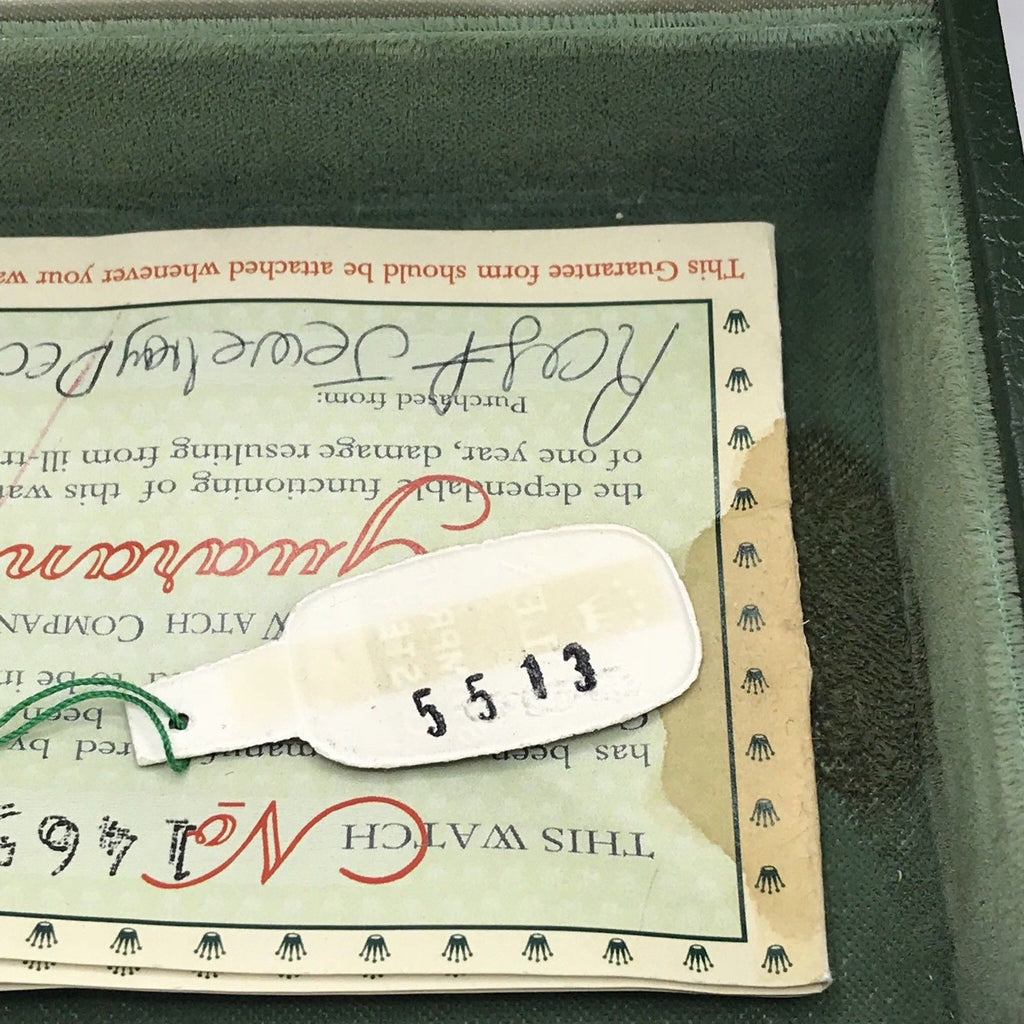 THIS WATCH No 1465
has been manuf red by
been
to be in
WATCH COMPAN
Guaran
the dependable functioning of this wat
of one year, damage resulting from ill-tr
Purchased from:
This Guarantee form should be attached whenever your wa
5513